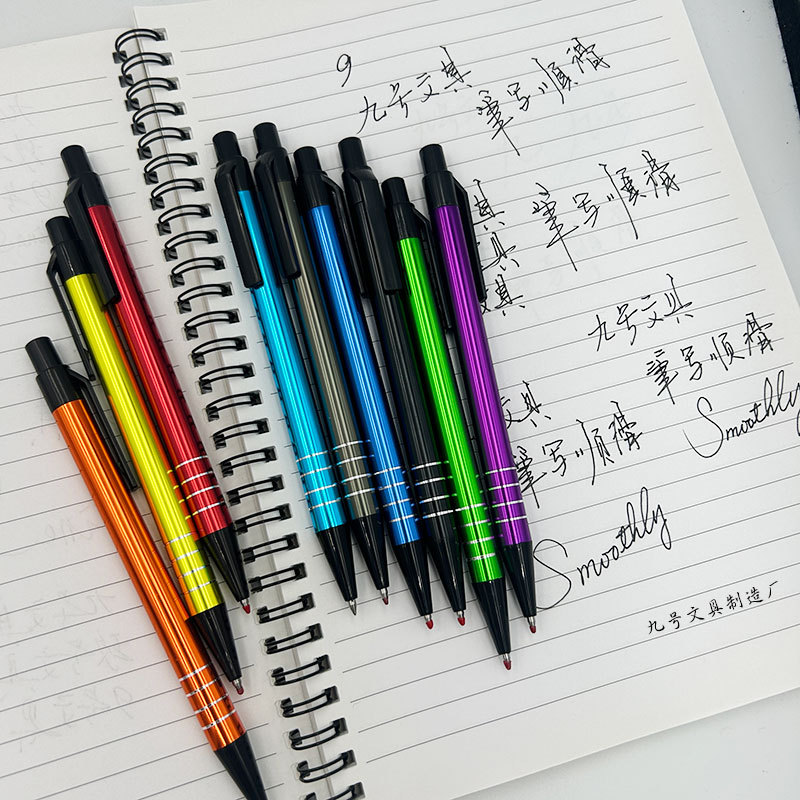 9
九号文具
筆写顺滑
具 筆写顺滑
具
具
九号文具
筆写顺滑
文具
Smoothly
筆写顺滑
Smoothly
九号文具制造厂